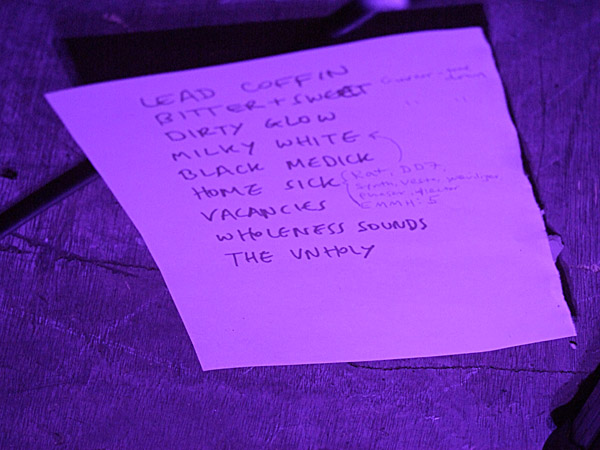 LEAD COFFIN
BITTER + SWEET
DIRTY GLOW
" "
MILKY WHITE
BLACK MEDICK
HOME SICK
VACANCIES
WHOLENESS SOUNDS
THE UNHOLY
(Rat, DD7,
EMMH: 5